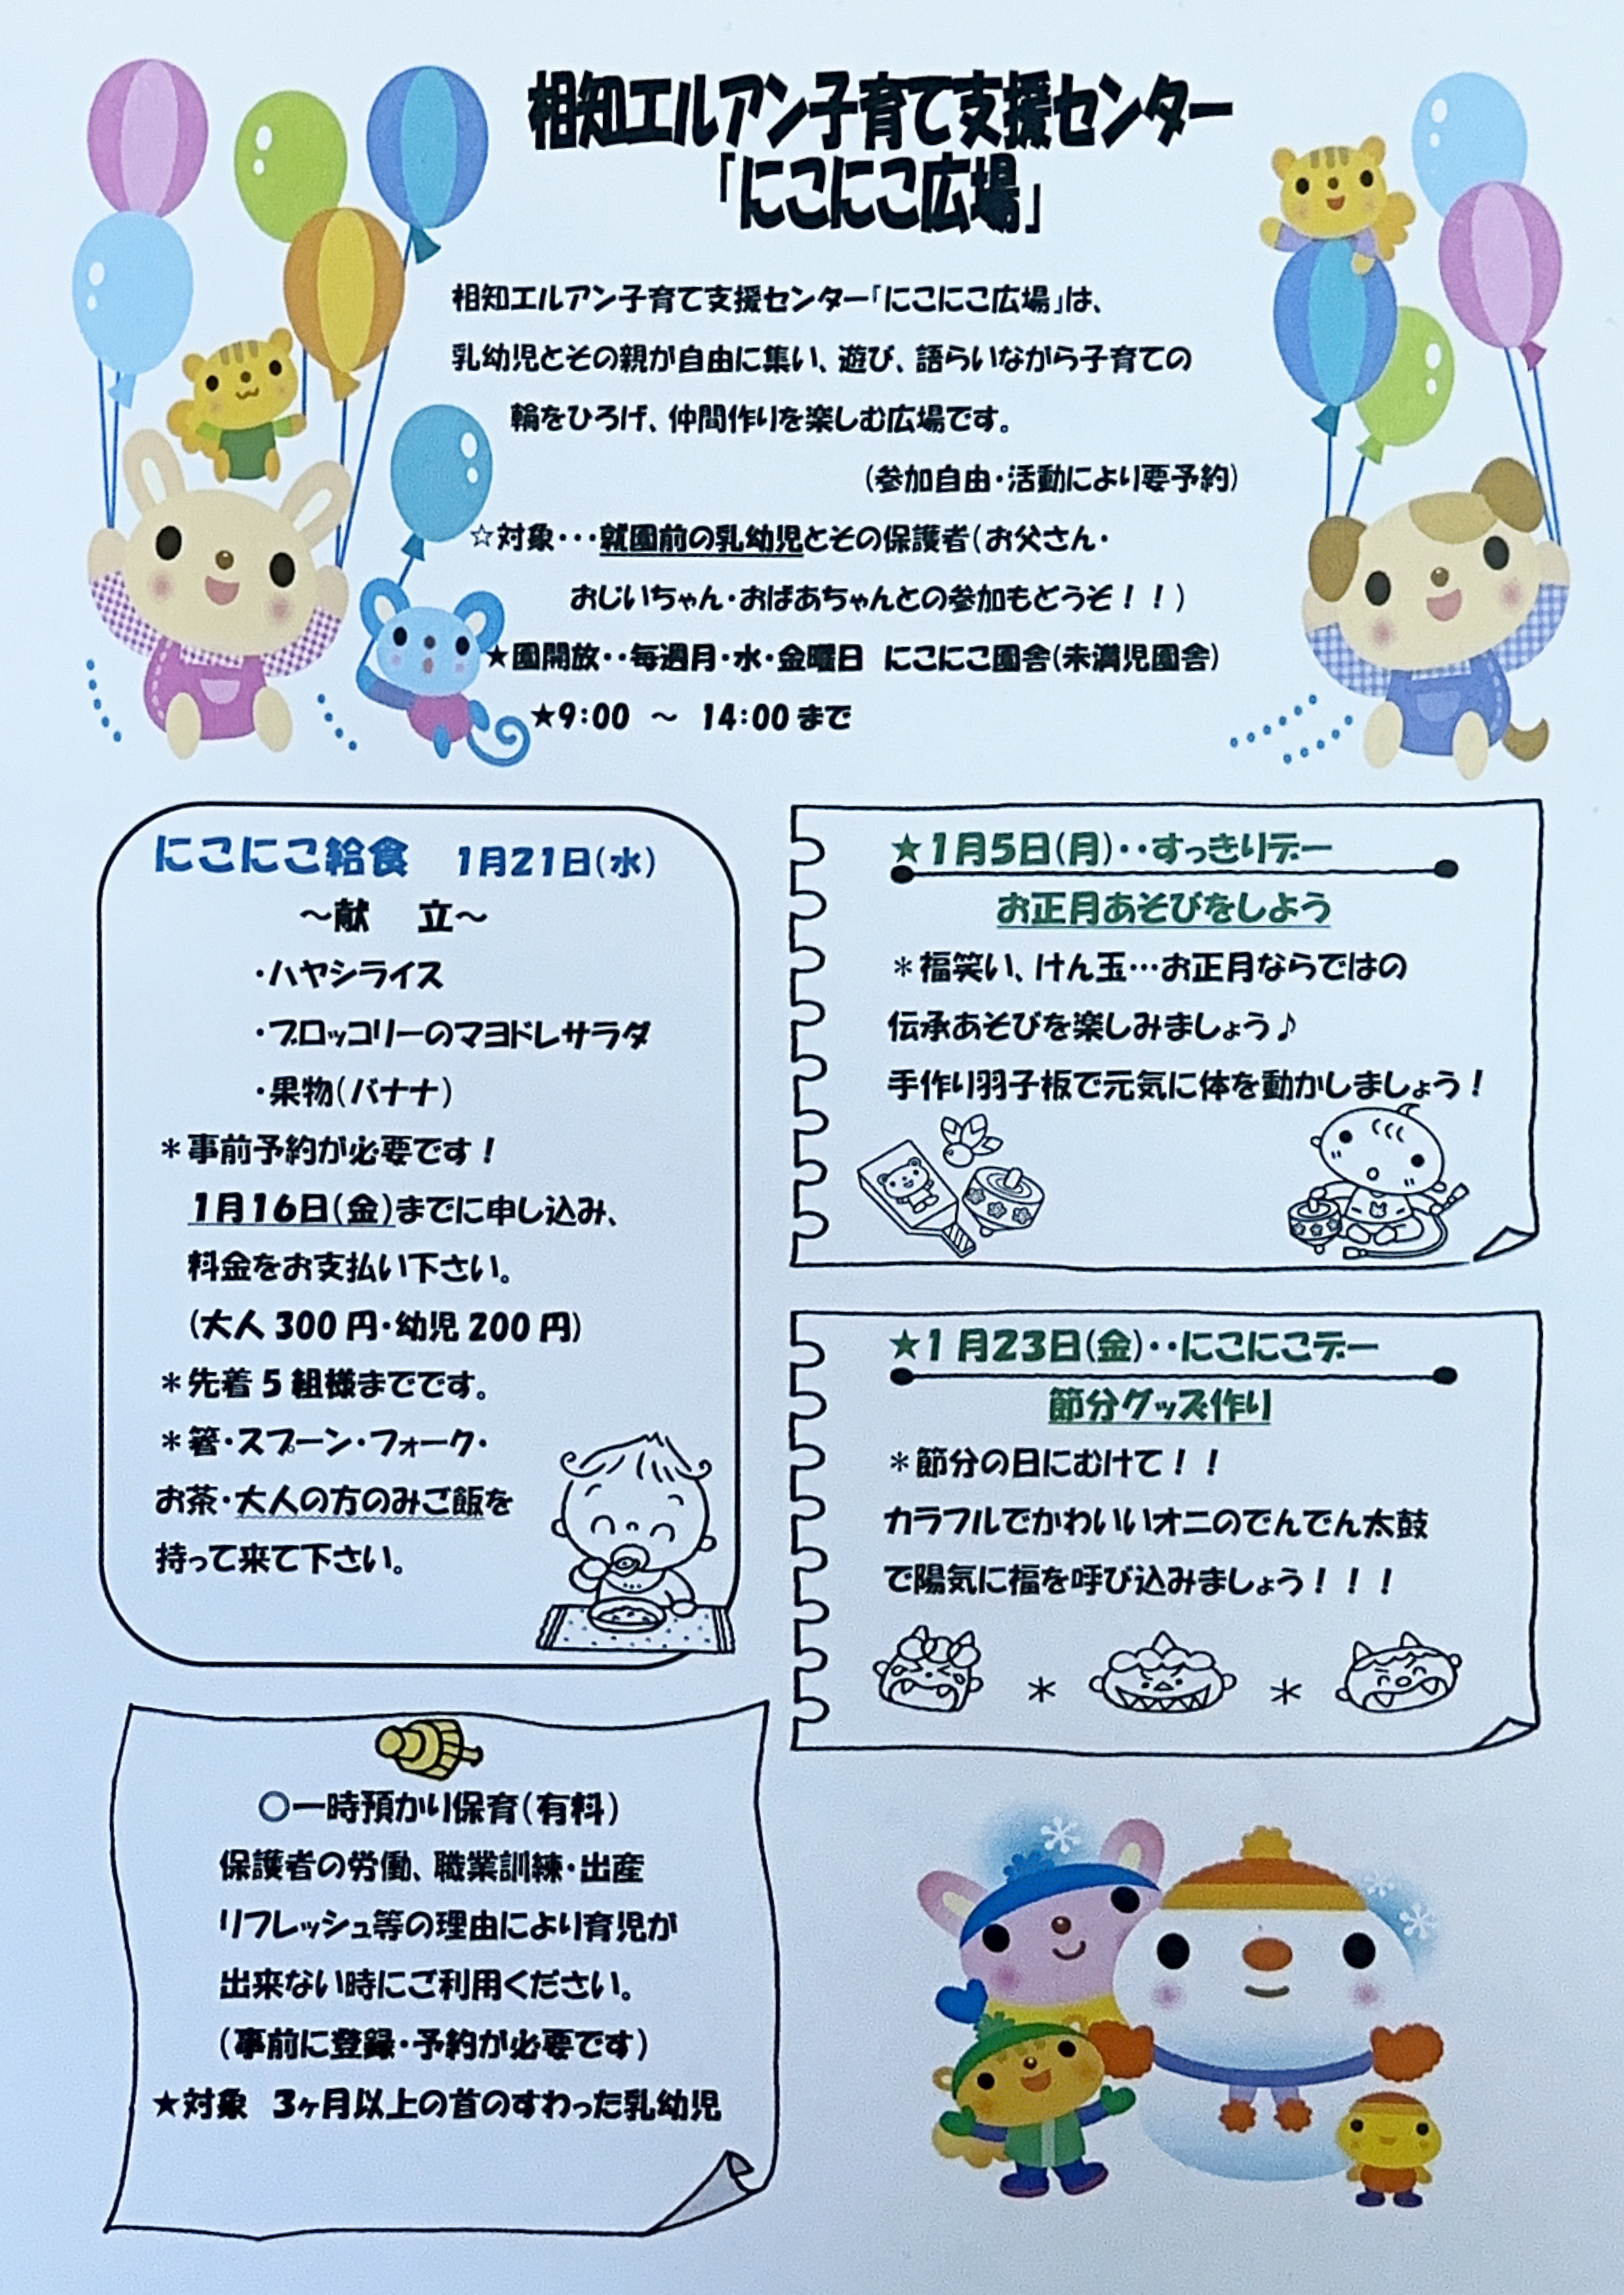 相知エルアン子育て支援センター
「にこにこ広場」
相知エルアン子育て支援センター「にこにこ広場」は、
乳幼児とその親が自由に集い、遊び、語らいながら子育ての
輪をひろげ、仲間作りを楽しむ広場です。
(参加自由・活動により要予約)
☆対象・・・就園前の乳幼児とその保護者(お父さん・
おじいちゃん・おばあちゃんとの参加もどうぞ！！)
★園開放・・毎週月・水・金曜日 にこにこ園舎(未満児園舎)
★9:00 ～ 14:00まで
にこにこ給食 1月21日(水)
～献 立～
・ハヤシライス
・ブロッコリーのマヨドレサラダ
・果物(バナナ)
＊事前予約が必要です！
1月16日(金)までに申し込み、
料金をお支払い下さい。
(大人300円・幼児200円)
＊先着5組様までです。
＊箸・スプーン・フォーク・
お茶・大人の方のみご飯を
持って来て下さい。
★1月5日(月)・・すっきりデー
お正月あそびをしよう
＊福笑い、けん玉…お正月ならではの
伝承あそびを楽しみましょう♪
手作り羽子板で元気に体を動かしましょう！
★1月23日(金)・・にこにこデー
節分グッズ作り
＊節分の日にむけて！！
カラフルでかわいいオニのでんでん太鼓
で陽気に福を呼び込みましょう！！！
＊ ＊
○一時預かり保育(有料)
保護者の労働、職業訓練・出産
リフレッシュ等の理由により育児が
出来ない時にご利用ください。
(事前に登録・予約が必要です)
★対象 3ヶ月以上の首のすわった乳幼児